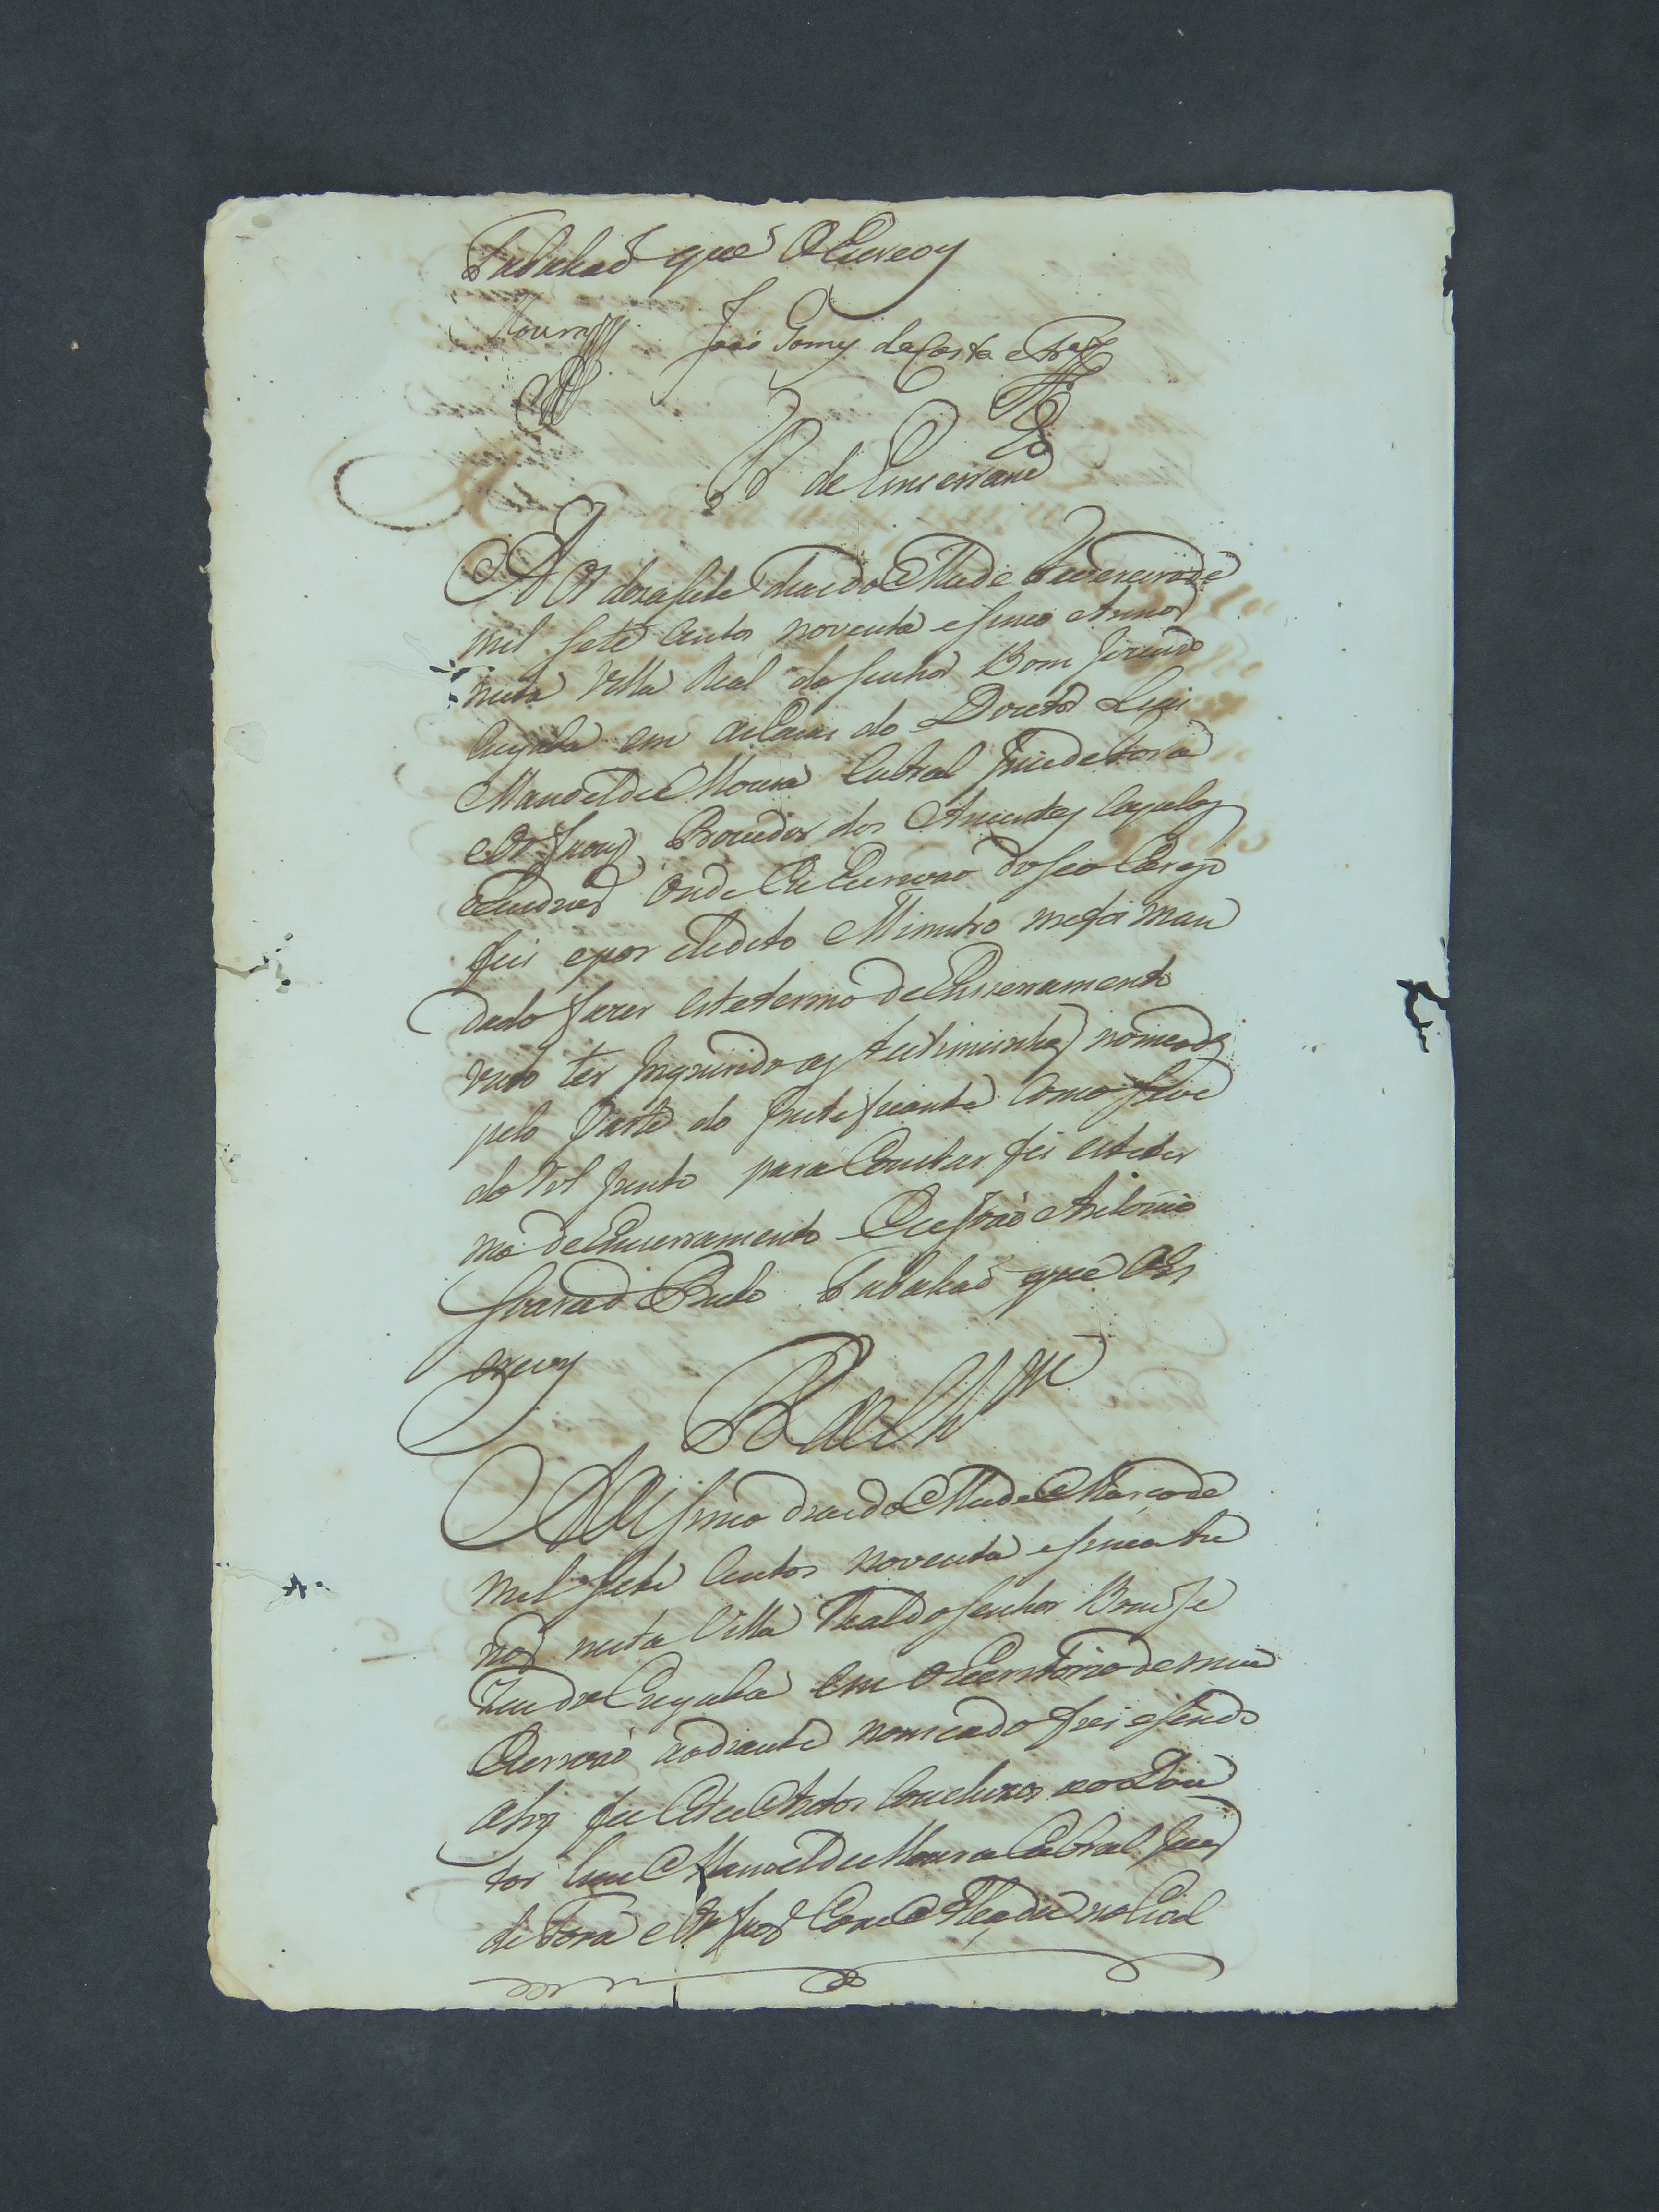 Tabaliaõ que o Escrevy
Moura José Gomes da Costa e
T. de Emserram.to
Aos dezasete dias do Mes de Fevereiro de
mil sete Centos noventa e sinco Annos
nesta Villa Real do Senhor Bom Jezus do
Cuyabá em as Cazas do Doutor Luis
Manoel de Moura Cabral Juis de Fora
e Orfaons Provedor dos Auzentes Capelas
e Reziduos onde Eu Escrivaõ do seo Cargo
fui e por elle dito Ministro me foi man
dado fazer este termo de Enserramento
visto ter Inquirido as testiminhas nomeadas
pelo parte do Justeficante Como se ve
do Rol junto para Constar fis este ter
mo de Encerramento Eu Joaõ Antonio
Tabaliaõ que o es
crevy
Aos sinco dias do Mes de Março de
mil sete Centos noventa e sinco An
nos nesta Villa Real do Senhor Bom Je
zus do Cuyabá em o Escritorio de mim
Escrivaõ ao diante nomeado fui e sendo
ahy fis estes Autos Concluzos ao Dou
tor Luis Manoel de Moura Cabral Juis
de Fora e Orfaos